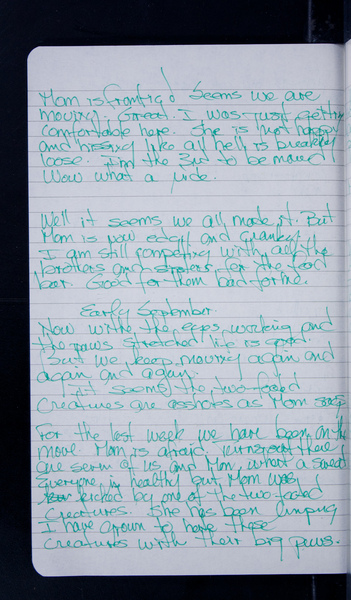 Mom is frantic! Seems we are
moving. Great. I was just getting
comfortable here. She is not happy
and hissing like all hell is breaking
loose. I'm the 3rd to be moved
Wow what a ride.
Well it seems we all made it. But
Mom is now edgy and cranky.
I am still competing with all the
brothers and sisters for the food
bar. Good for them bad for me.
Early September.
Now with the eyes working and
the paws stretched life is good.
But we keep moving again and
again and again.
It seems the two footed
creatures are assholes as Mom says
For the last week we have been on the
move. Mom is afraid, turns out there
are seven of us and Mom, what a sweat
Everyone is healthy but Mom was
kicked by one of the two footed
creatures. She has been limping
I have grown to hate these
creatures with their big paws.